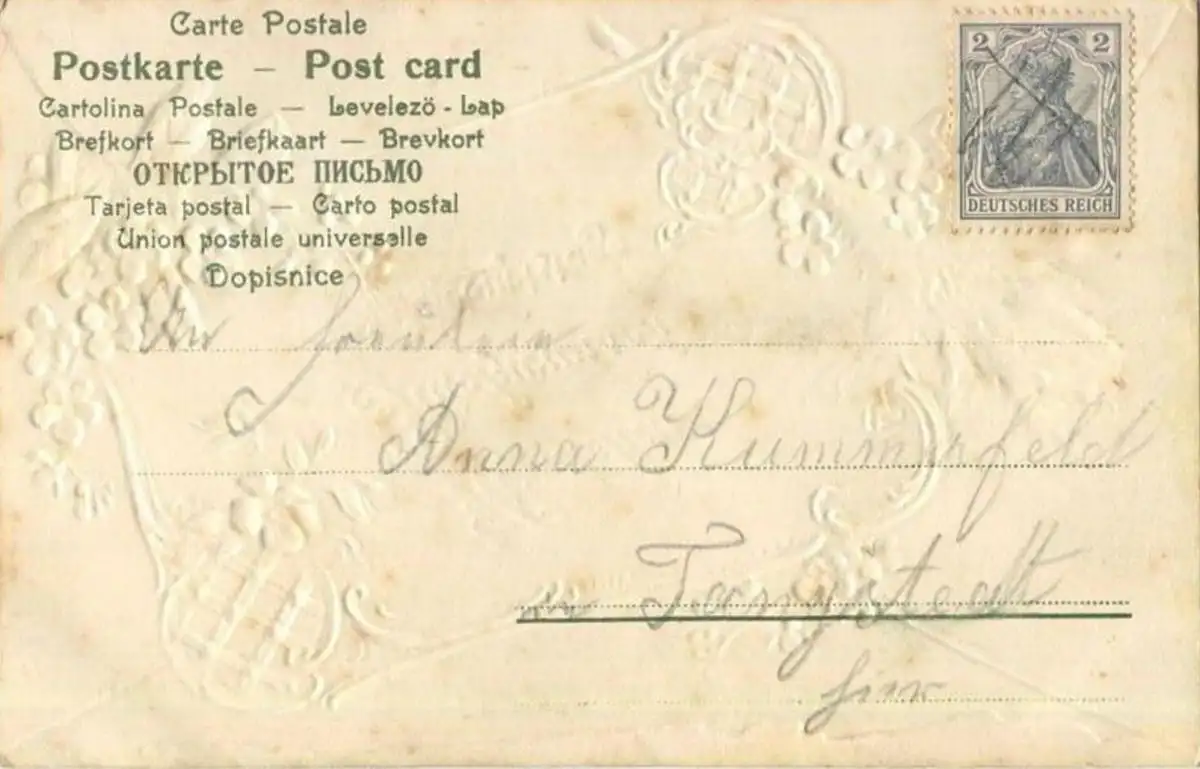 Carte Postale
Postkarte – Post card
Cartolina Postale – Levelezö - Lap
Brefkort – Briefkaart – Brevkort
ОТКРЫТОЕ ПИСЬМО
Tarjeta postal – Carto postal
Union postale universelle
Dopisnice
2 2
DEUTSCHES REICH
An Fräulein
Anna Kummerfeld
in Tangstedt
hier